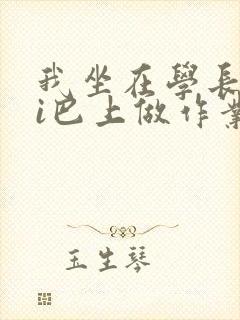 我坐在學長
i巴上做作業
玉生琴